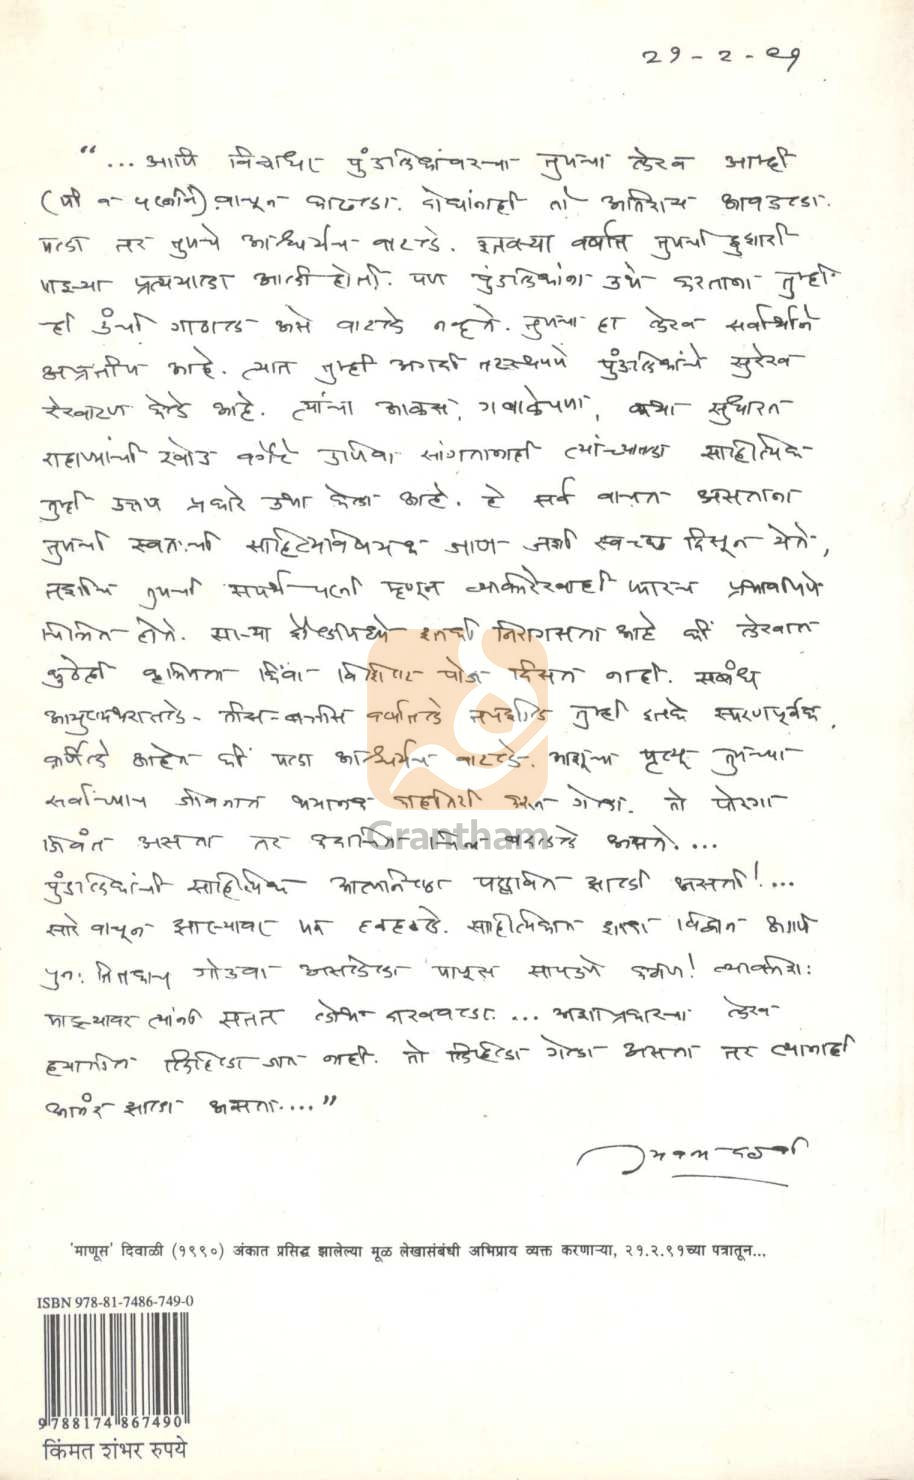 २१-२-९१
“... आणि विद्याधर पुंडलिकांवरचा तुमचा लेख आम्ही
(मी व पत्नीने) वाचून काढला. दोघांनाही तो अतिशय आवडला.
मला तर तुमचे आश्चर्यच वाटले. इतक्या वर्षात तुमची हुशारी
माझ्या प्रत्ययाला आली होती. पण पुंडलिकांना उभे करताना तुम्ही
ही उंची गाठाल असे वाटले नव्हते. तुमचा हा लेख सर्वार्थाने
अप्रतीम आहे. त्यात तुम्ही अगदी तटस्थपणे पुंडलिकांचे सुरेख
रेखाटण केले आहे. त्यांचा आळस, गबाळेपणा, कथा सुधारत
राहण्याची खोड वगैरे उणिवा सांगतानाही त्यांच्यातला साहित्यिक
तुम्ही उत्तम प्रकारे उभा केला आहे. हे सर्व वाचत असताना
तुमची स्वतःची साहित्यविषयक जाण जशी स्वच्छ दिसून येते,
तशीच तुमची समर्थ पत्नी म्हणून व्यक्तिरेखाही फारच प्रभावीपणे
चित्रित होते. साऱ्या शैलीमध्ये इतकी निरागसता आहे की लेखात
कुठेही कृत्रिमता किंवा विशिष्ट पोज दिसत नाही. सबंध
आयुष्यभरातले - तीस-बत्तीस वर्षातले तपशील तुम्ही इतके स्मरणपूर्वक
वर्णिले आहेत की मला आश्चर्यच वाटले. आशूचा मृत्यू तुमच्या
सर्वांच्याच जीवनात भयानक शोकांतिका करून गेला. तो पोरगा
जिवंत असता तर कदाचित चित्र बदलले असते. ...
पुंडलिकांची साहित्यिक आत्मनिष्ठा पल्लवित झाली असती! ...
सारे वाचून झाल्यावर मन हळहळले. साहित्यिकात इतका विद्वान आणि
पुन: तितकाच गोडवा असलेला माणूस सापडणे कठीण! व्यक्तीश:
माझ्यावर त्यांनी सतत लोभ दाखवला. ... अशाप्रकारचा लेख
हयातीत लिहिला जात नाही. तो लिहिला गेला असता तर त्यांनाही
आनंद झाला असता....”
'माणूस' दिवाळी (१९९०) अंकात प्रसिद्ध झालेल्या मूळ लेखासंबंधी अभिप्राय व्यक्त करणाऱ्या, २१.२.९१च्या पत्रातून...
ISBN 978-81-7486-749-0
9 788174 867490
किंमत शंभर रुपये
Grantham